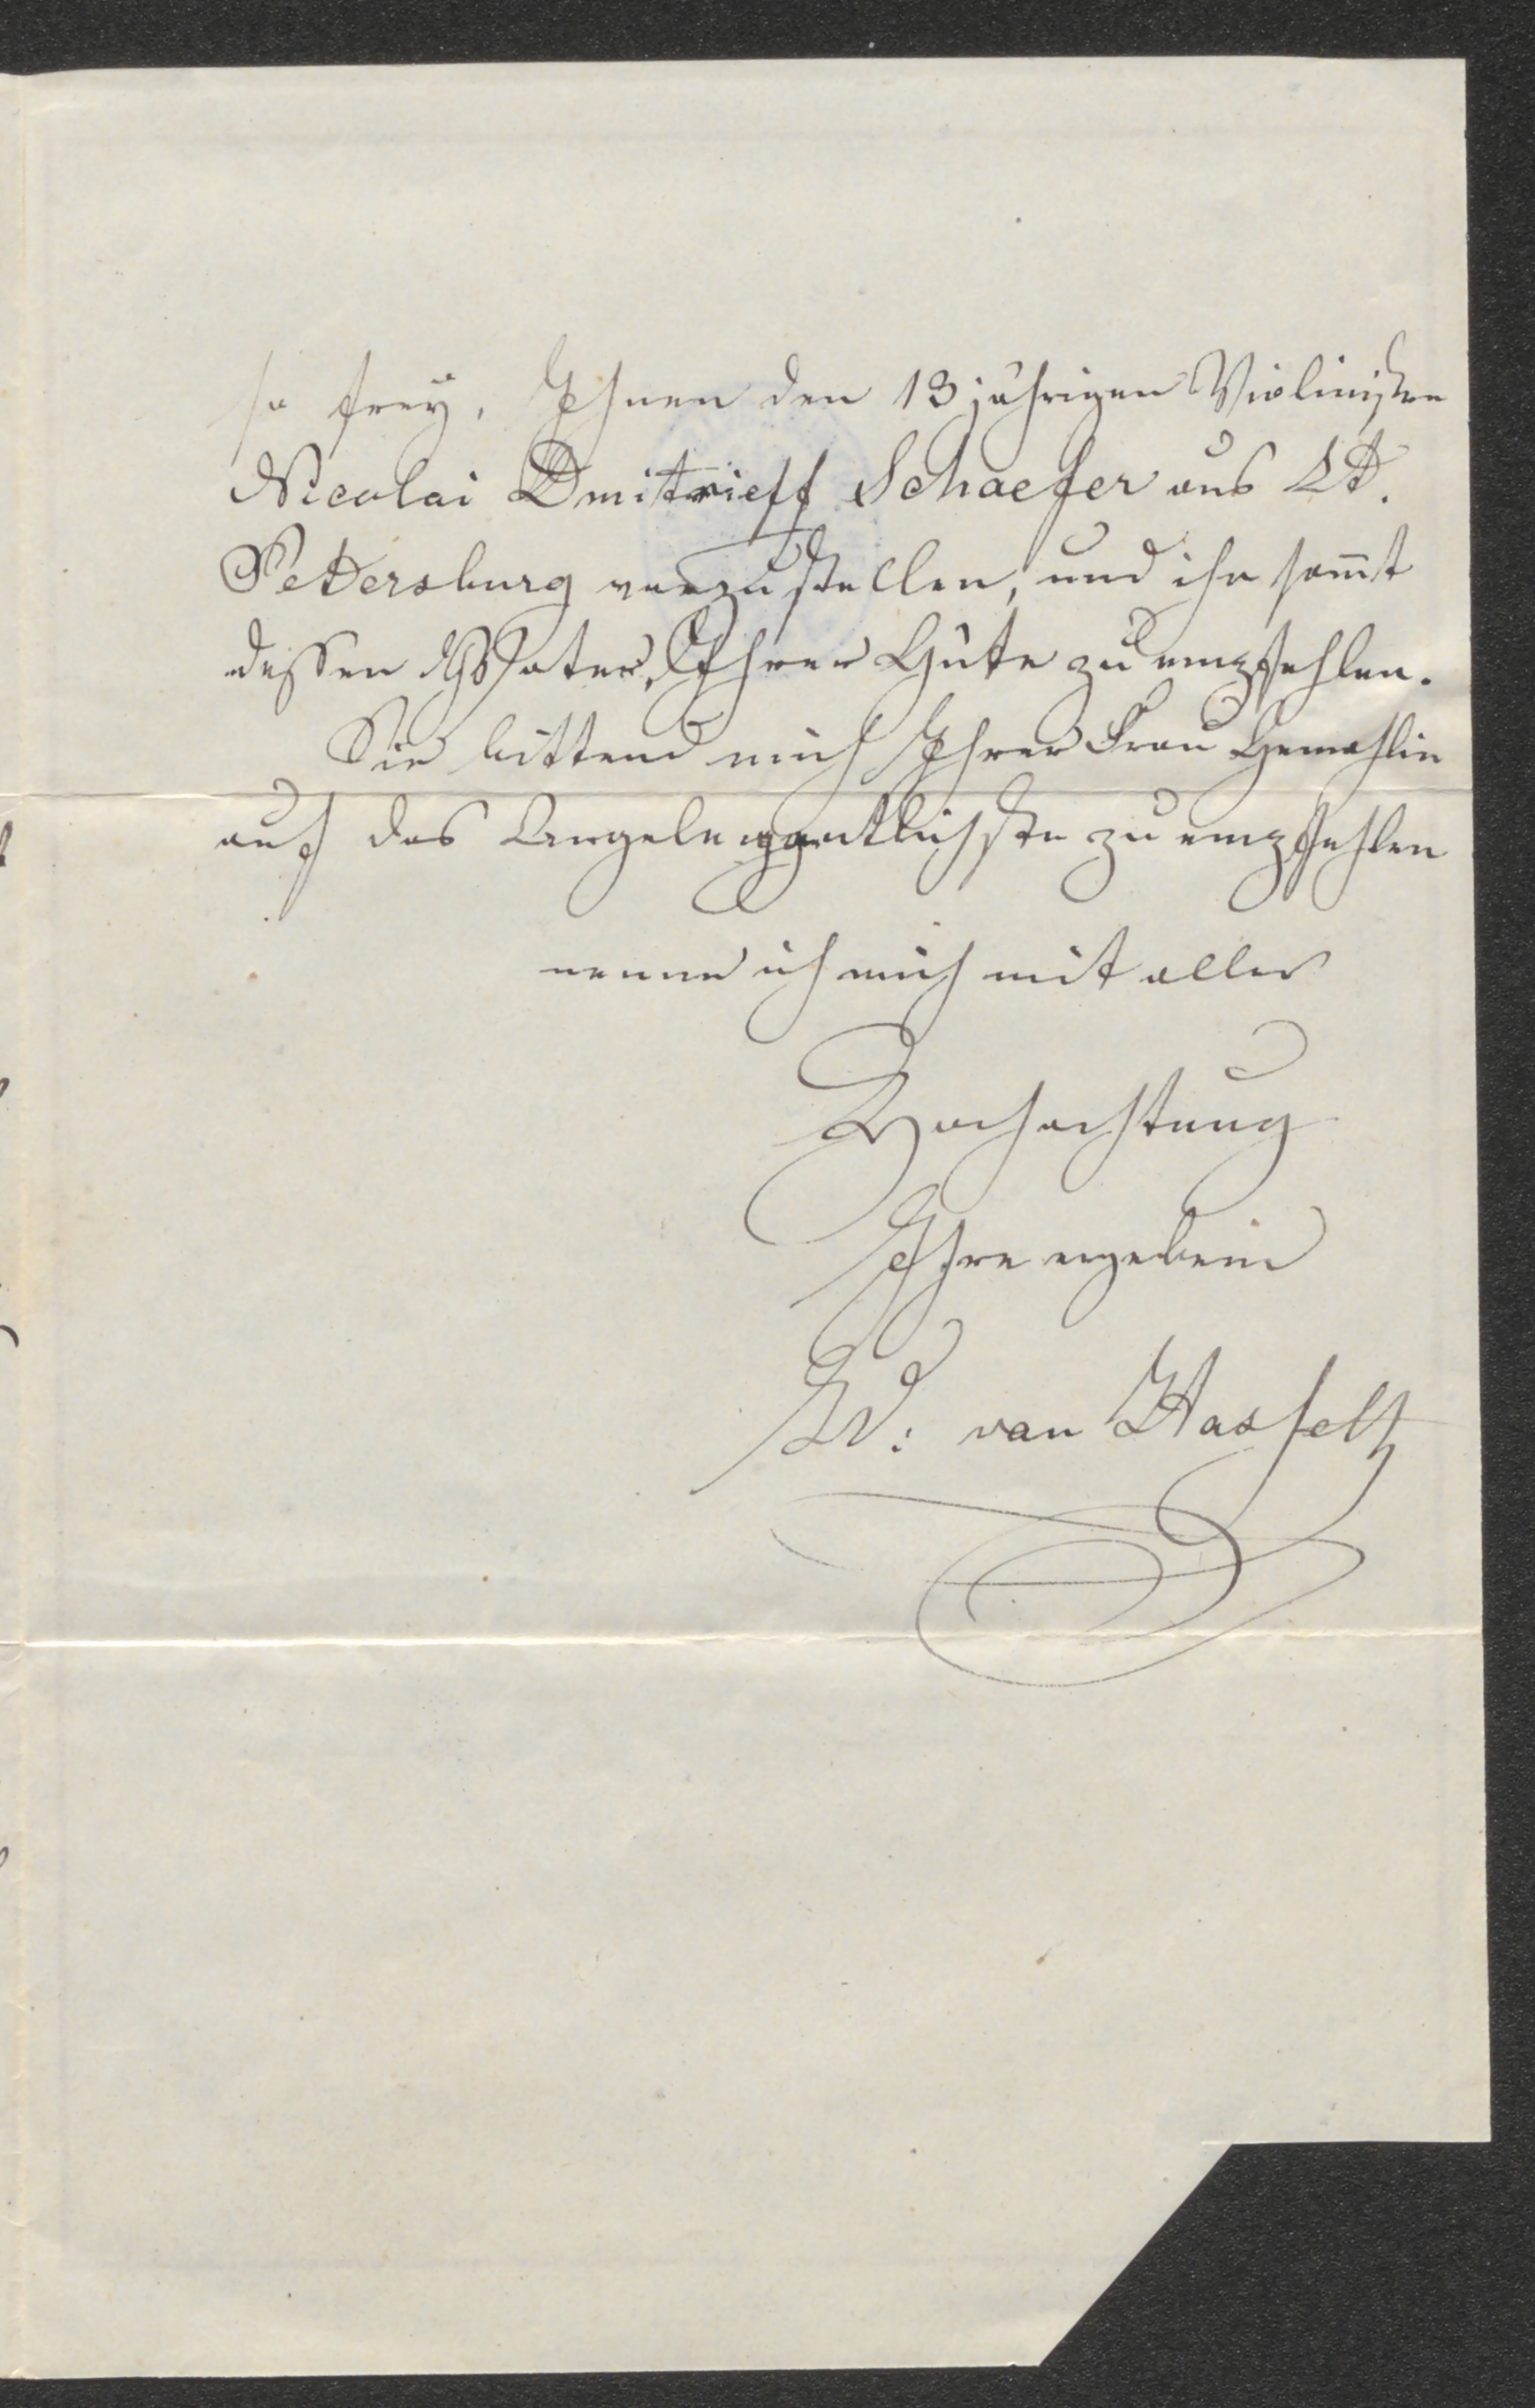 so frey, Ihnen den 13 jährigen Violinisten
Nicolai Dmitrieff Schaefer aus St.
Petersburg vorzustellen, und ihn sam̄t
dessen Vater, Ihrer Güte zu empfehlen.
Sie bittend mich Ihrer Frau Gemahlin
auf das Angelegentlichste zu empfehlen
nenne ich mich mit aller
Hochachtung
Ihre ergebene
van Hasselt